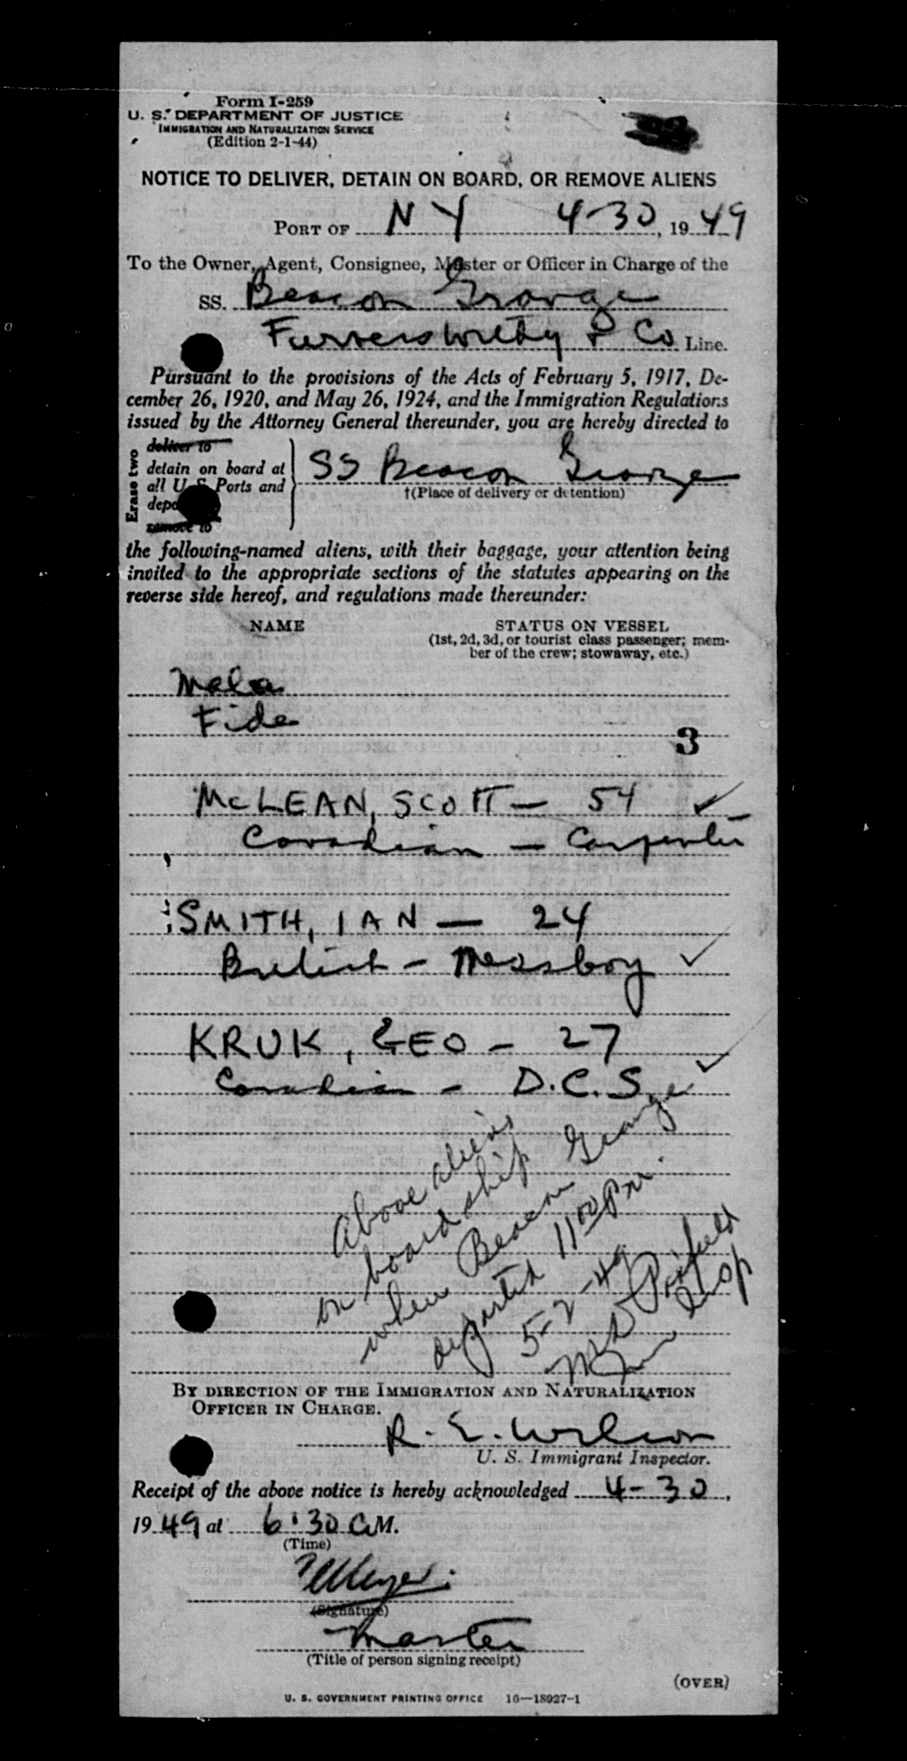 Form I-259
U. S. DEPARTMENT OF JUSTICE
IMMIGRATION AND NATURALIZATION SERVICE
(Edition 2-1-44)
NOTICE TO DELIVER, DETAIN ON BOARD, OR REMOVE ALIENS
PORT OF N Y 4-30, 1949
To the Owner, Agent, Consignee, Master or Officer in Charge of the
SS. Beacon Grange
Furness Withy & Co Line.
Pursuant to the provisions of the Acts of February 5, 1917, De-
cember 26, 1920, and May 26, 1924, and the Immigration Regulations
issued by the Attorney General thereunder, you are hereby directed to
Erase two
deliver to
detain on board at
all U. S. Ports and
remove to
SS Beacon Grange
†(Place of delivery or detention)
the following-named aliens, with their baggage, your attention being
invited to the appropriate sections of the statutes appearing on the
reverse side hereof, and regulations made thereunder:
NAME STATUS ON VESSEL
(1st, 2d, 3d, or tourist class passenger; mem-
ber of the crew; stowaway, etc.)
Mala
Fide
3
McLEAN, SCOTT — 54 ✓
Canadian — Carpenter
SMITH, IAN — 24
British — Messboy ✓
KRUK, GEO — 27
Canadian — D.C.S. ✓
Above aliens
on board ship
when Beacon Grange
departed 11 00 Pm.
5-2-49
BY DIRECTION OF THE IMMIGRATION AND NATURALIZATION
OFFICER IN CHARGE.
R. E. Wilson
U. S. Immigrant Inspector.
Receipt of the above notice is hereby acknowledged 4-30,
1949 at 6:30 a.M.
(Time)
(Signature)
Master
(Title of person signing receipt)
(OVER)
U. S. GOVERNMENT PRINTING OFFICE 16—18927-1